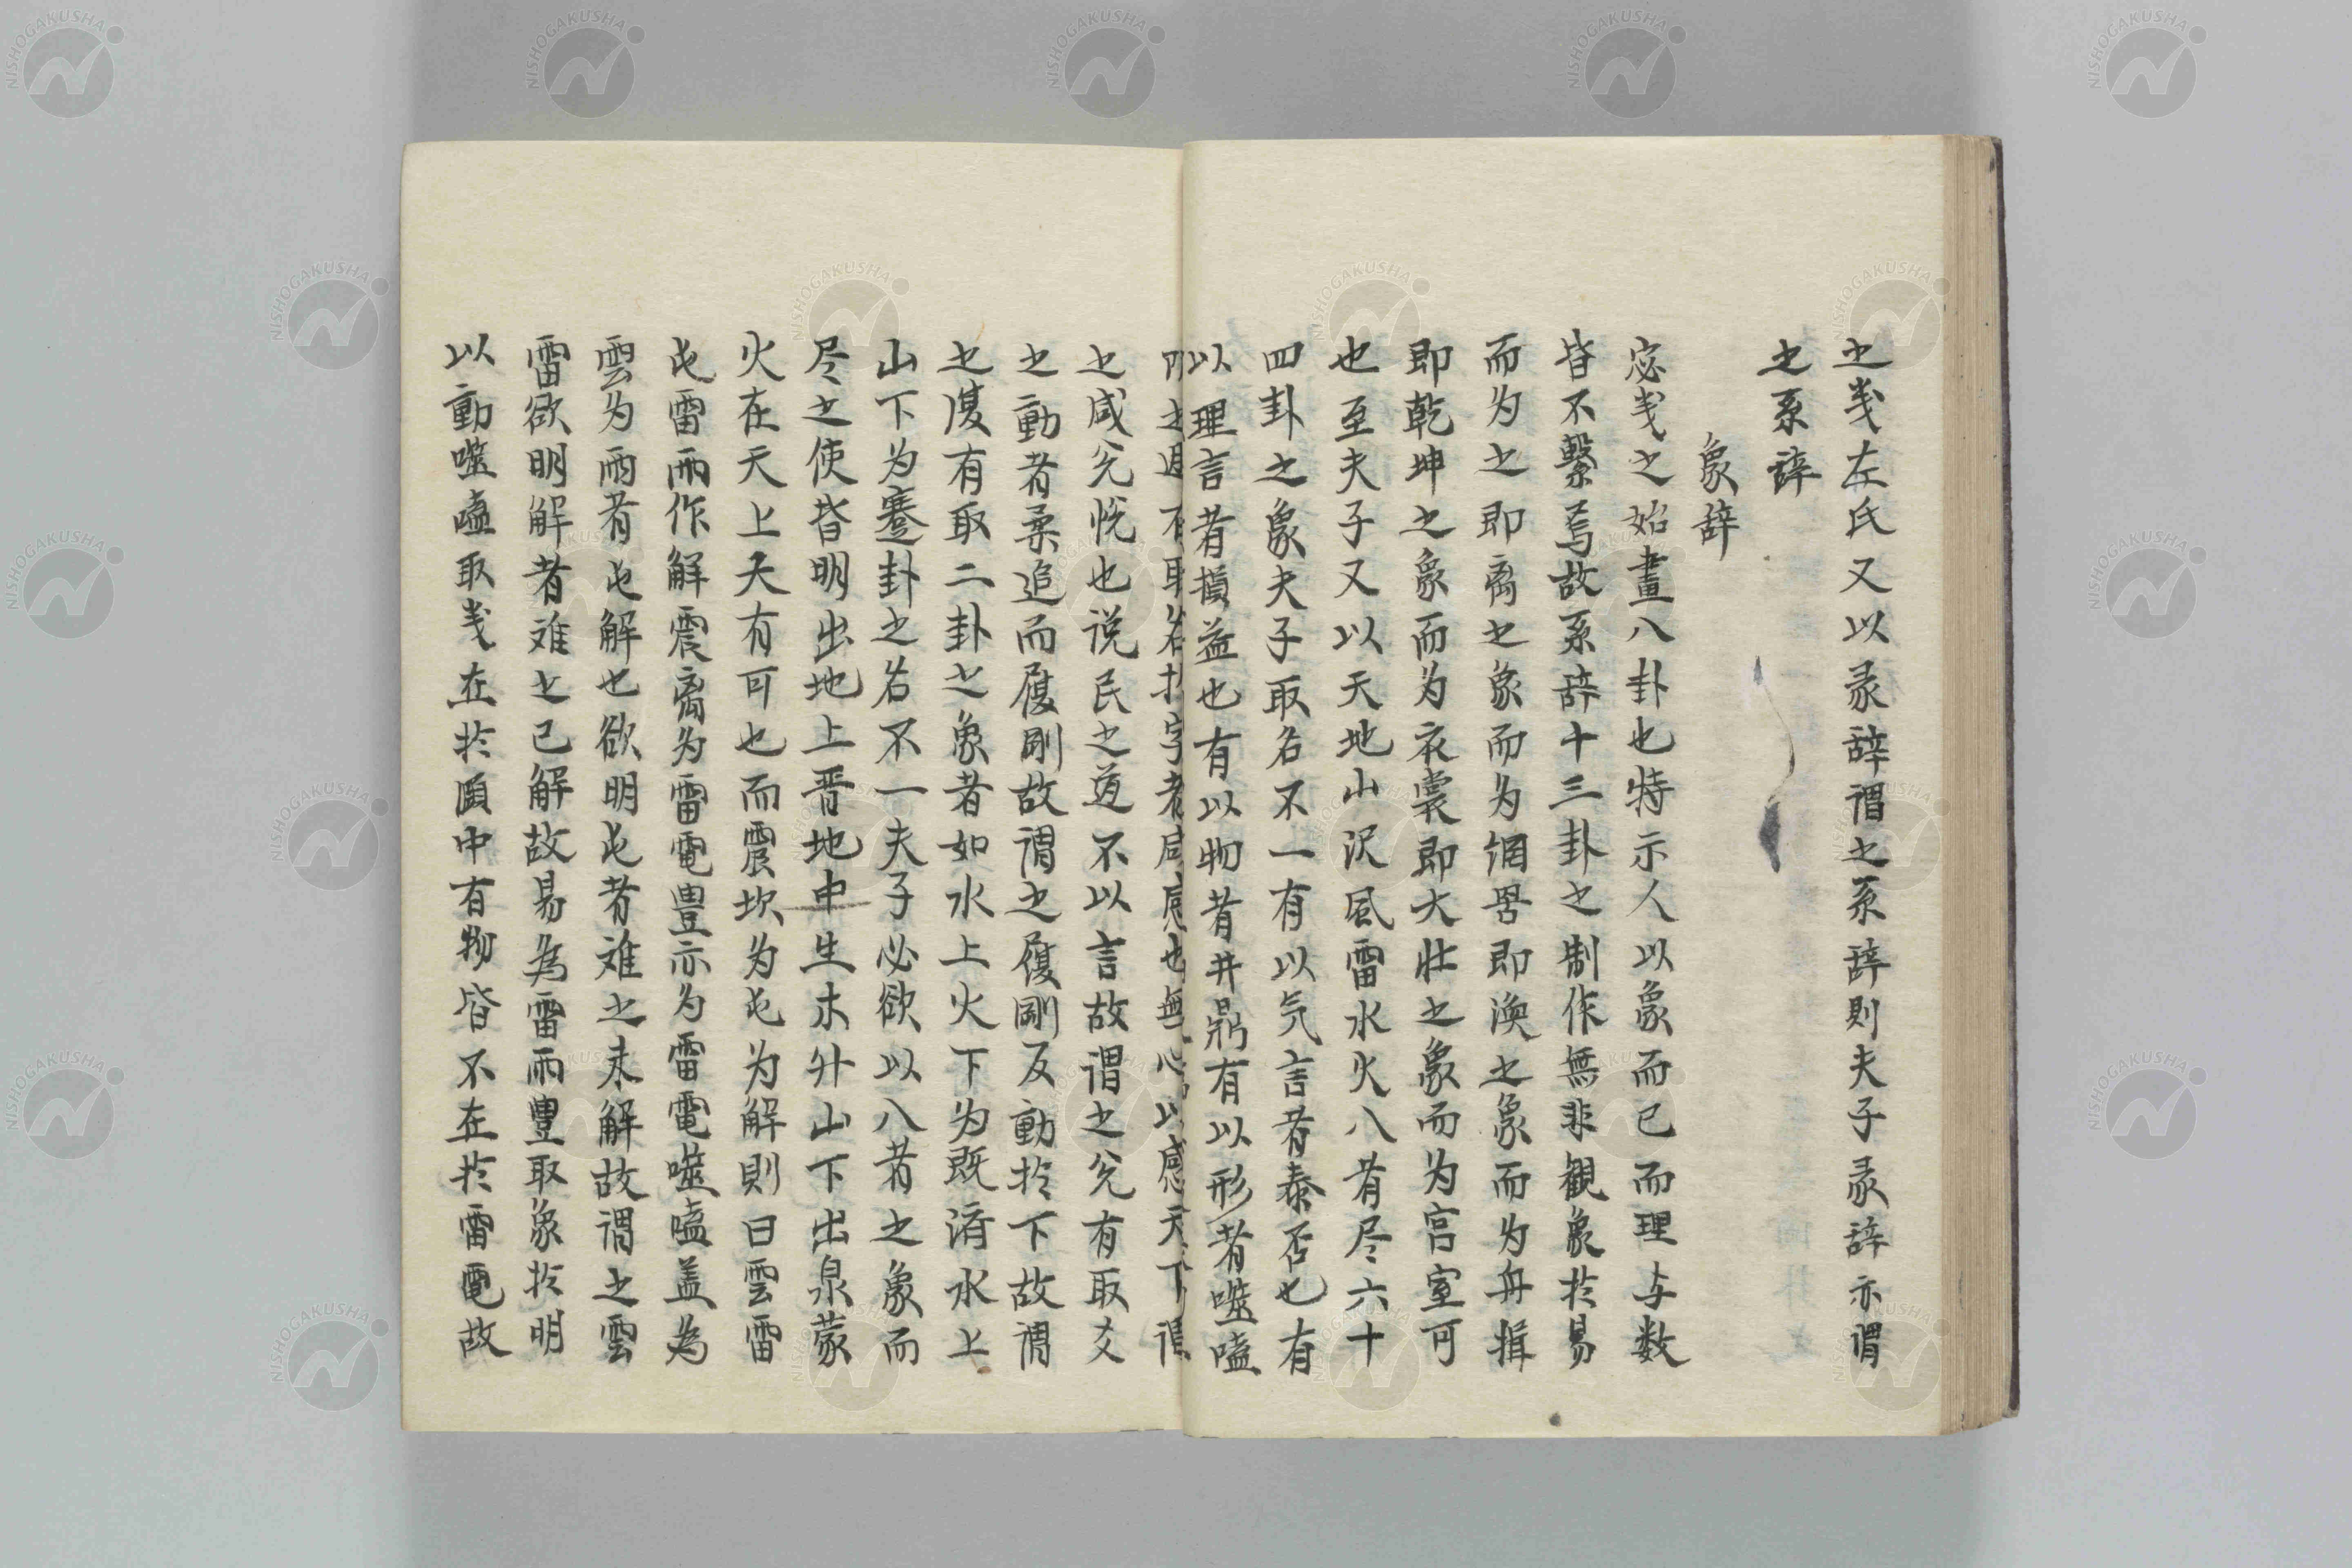 之義左氏又以彖辞謂之系辞則夫子彖辞亦謂
之系辞
象辞
宓義之始畫八卦也特示人以象而已而理与数
皆不繫焉故系辞十三卦之制作無非観象於易
而为之即离之象而为網罟即渙之象而为舟揖
即乾坤之象而为衣裳即大壮之象而为宫室可
也至夫子又以天地山沢風雷水火八者尽六十
四卦之象夫子取名不一有以気言者泰否也有
以理言者損益也有以物者井鼎有以形者噬嗑
取名於字者咸感也無心以感天下謂
之咸兊悦也说民之道不以言故谓之兊有取爻
之動者柔追而履剛故谓之履剛反動於下故谓
之復有取二卦之象者如水上火下为既済水上
山下为蹇卦之名不一夫子必欲以八者之象而
尽之使皆明出地上晋地中生木升山下出泉蒙
火在天上大有可也而震坎为屯为解則曰雲雷
屯雷雨作解震离为雷電豊亦为雷電噬嗑盖為
雲为雨者屯解也欲明屯者难之未解故谓之雲
雷欲明解者难之已解故易為雷雨豊取象於明
以動噬嗑取義在於頤中有物皆不在於雷電故